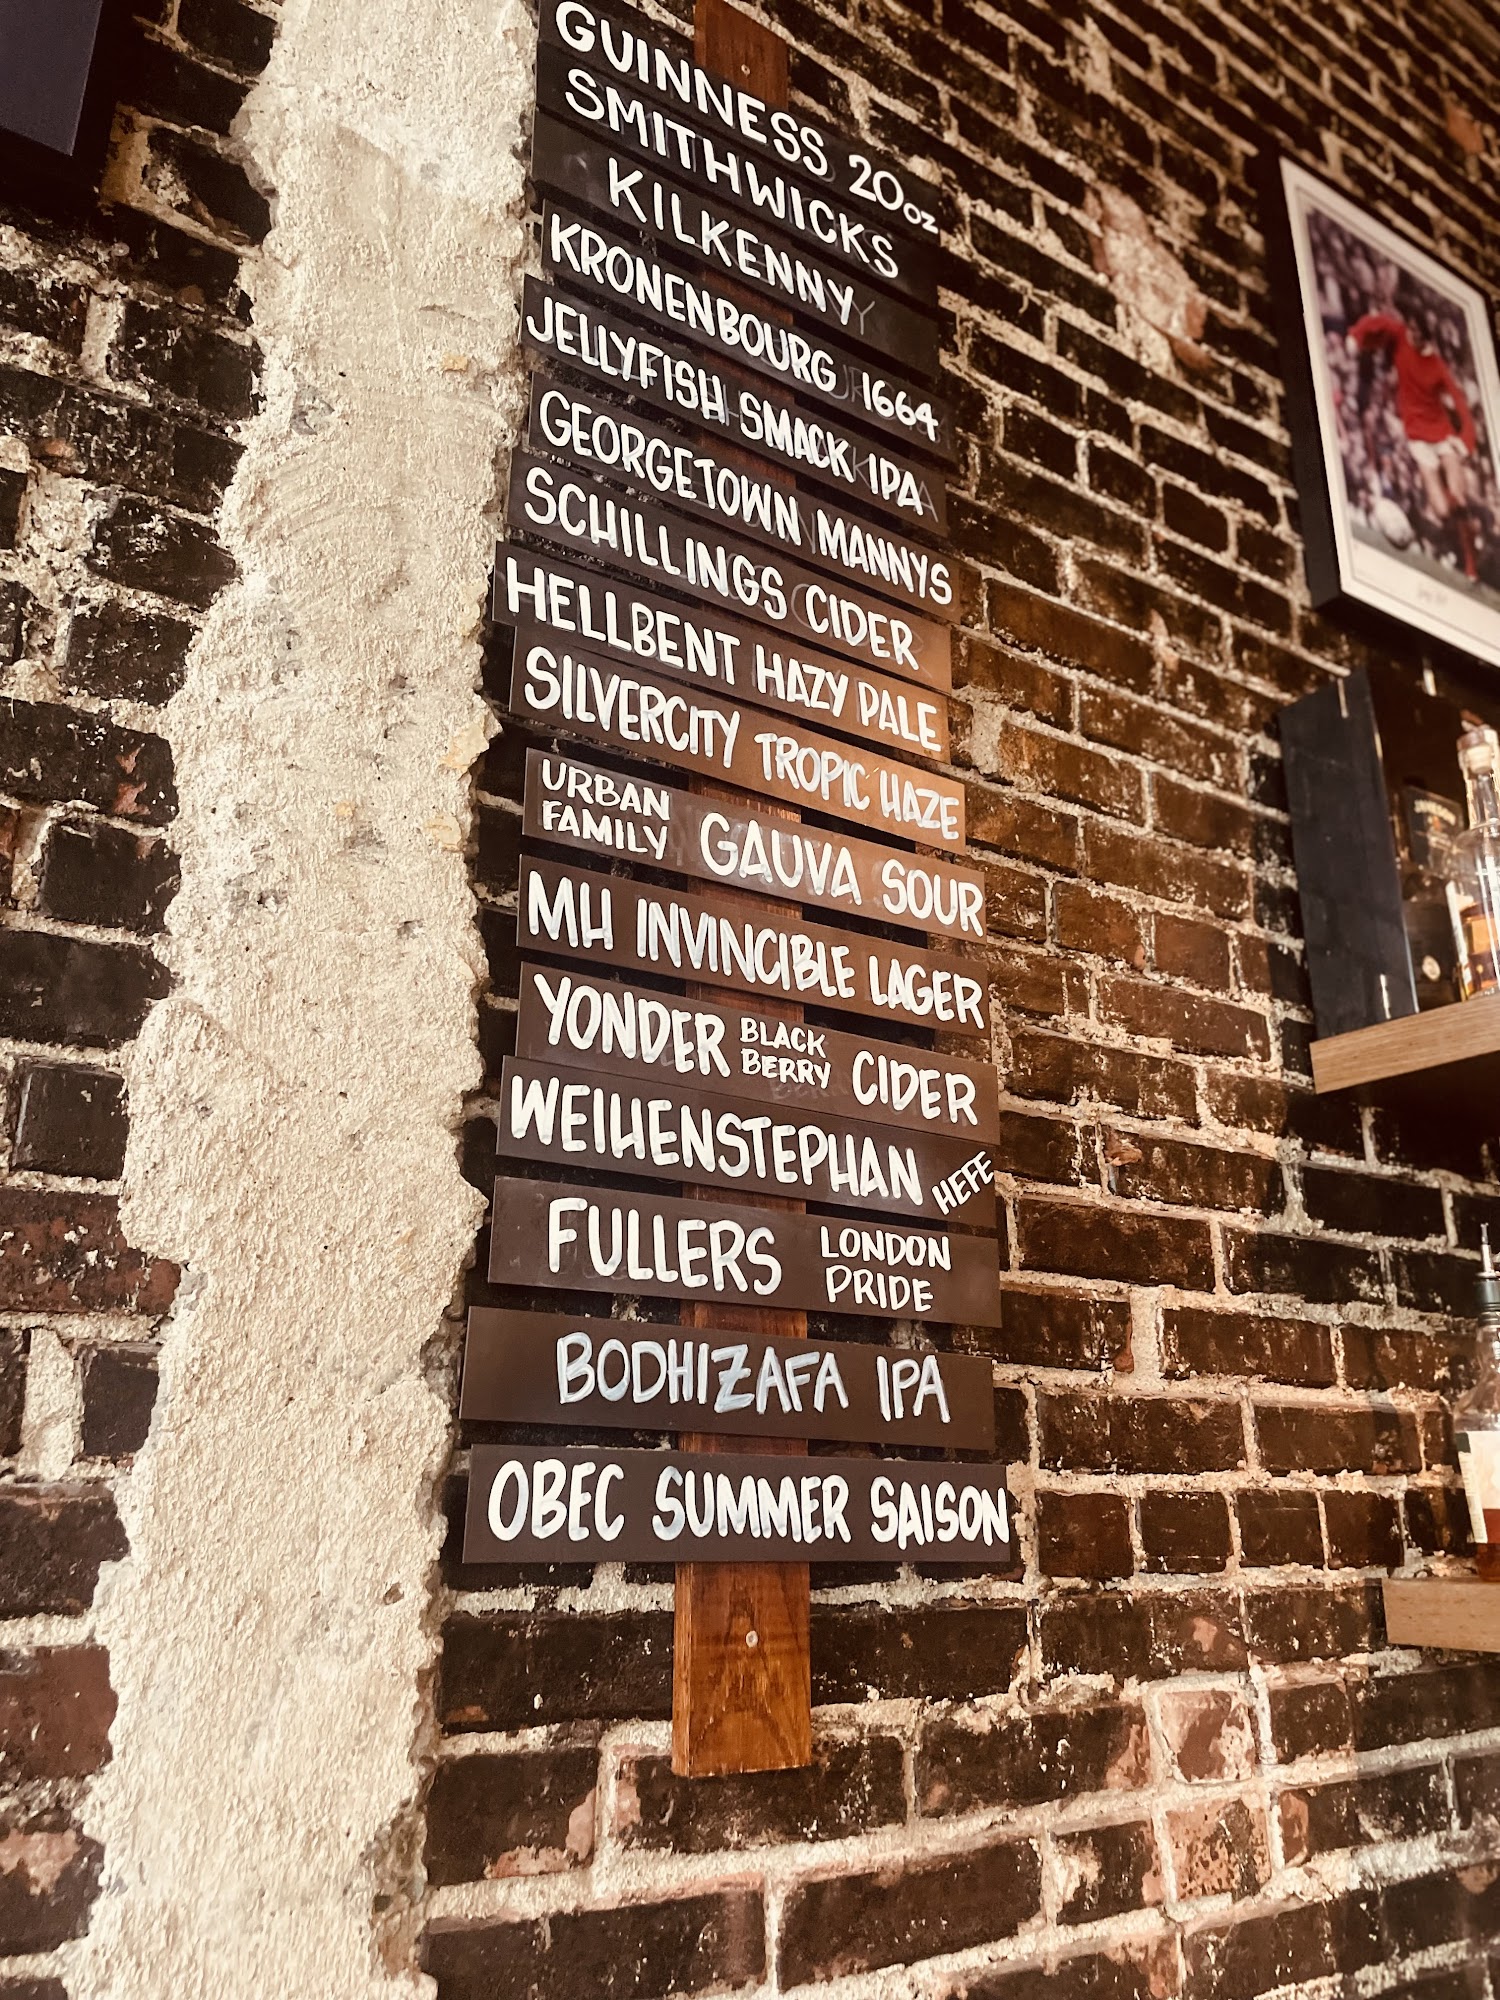 GUINNESS 20oz
SMITHWICKS
KILKENNY
KRONENBOURG 1664
JELLYFISH SMACK IPA
GEORGETOWN MANNYS
SCHILLINGS CIDER
HELLBENT HAZY PALE
SILVERCITY TROPIC HAZE
URBAN
FAMILY
GAUVA SOUR
MH INVINCIBLE LAGER
YONDER BLACK
BERRY CIDER
WEIHENSTEPHAN HEFE
FULLERS LONDON
PRIDE
BODHIZAFA IPA
OBEC SUMMER SAISON